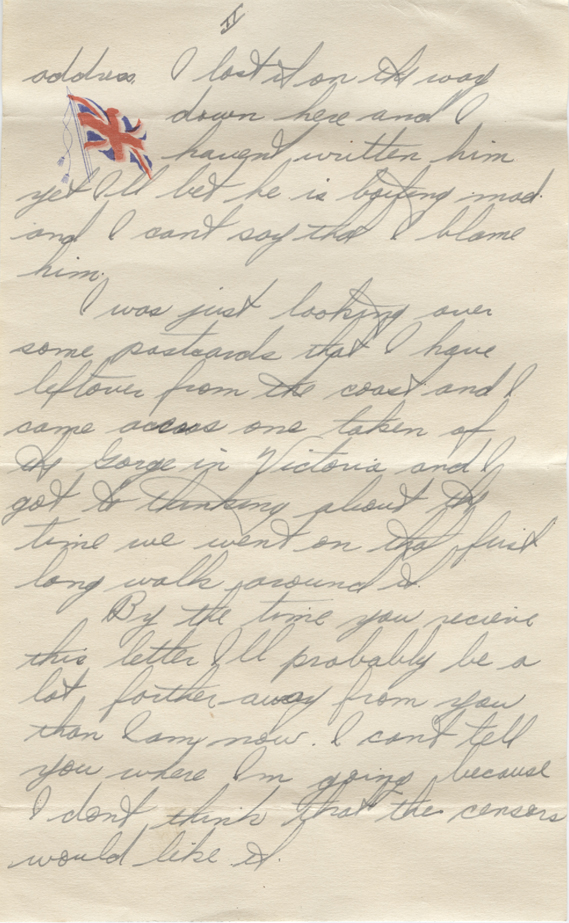 II
address. I lost it on the way
down here and I
havent written him
yet I'll bet he is boiling mad
and I cant say that I blame
him.
I was just looking over
some postcards that I have
leftover from the coast and I
came across one taken of
the Gorge in Victoria and I
got to thinking about the
time we went on that first
long walk around it.
By the time you recieve
this letter I'll probably be a
lot farther away from you
than I am now. I can't tell
you where I'm going because
I don't think that the censors
would like it.